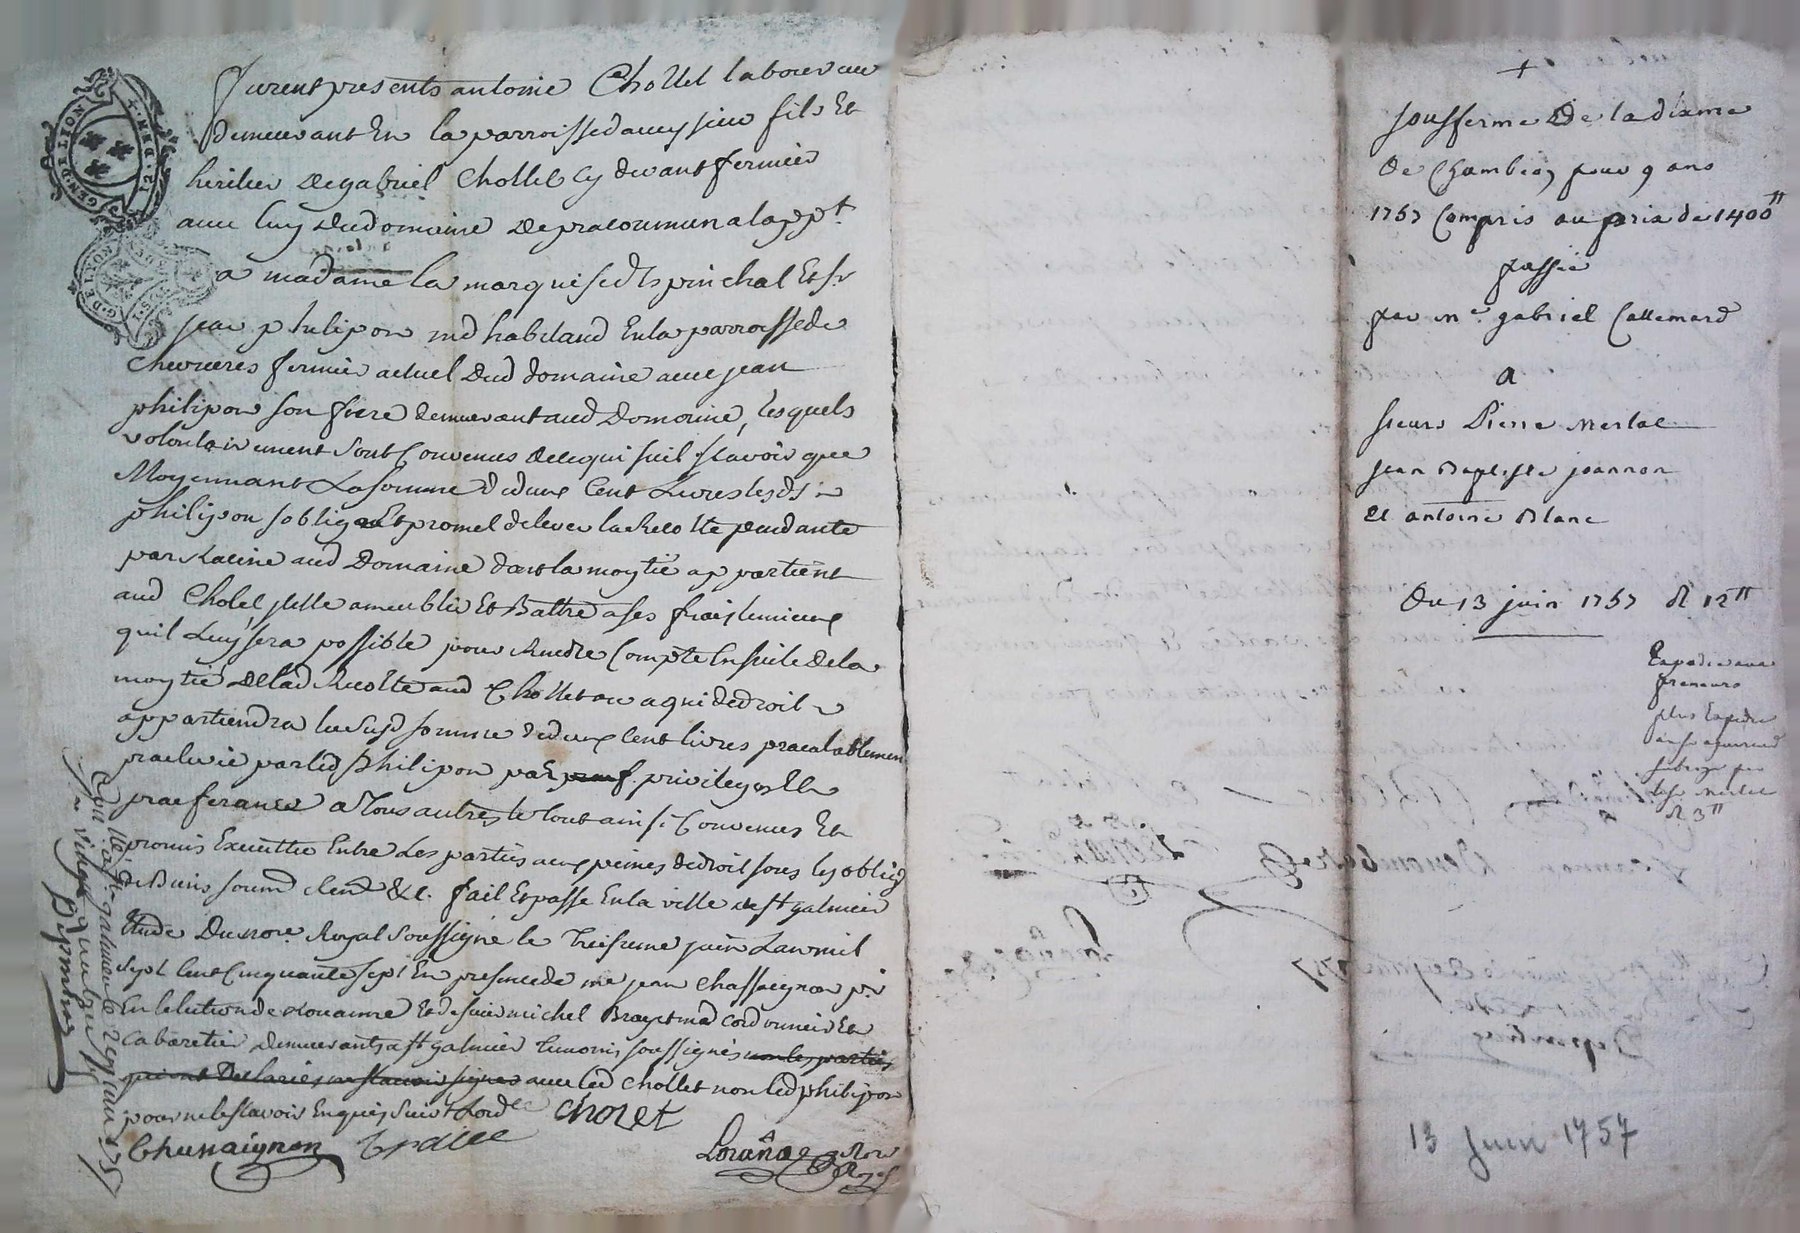 furent presents antoine Chollet laboureur
demeurant En la parroisse daveysieu fils Et
heritier De gabriel Chollet cy devant fermier
avec luy Dudomaine De pracoumunal app.t
a madame la marquise dEspinchal Et sr
jean philipon md habitand En la parroisse de
Chevrieres fermier actuel Dud domaine avec jean
philipon son frere demeurant aud Domaine, lesquels
volontairement sont Convenus de ce qui suit scavoir que
Moyennant La somme de deux Cent Livres led sr
philipon s'oblige Et promet de lever la Recolte pendante
par Racine aud Domaine dont la moytié appartient
aud Cholet jcelle ameublir Et Battre a ses frais le mieux
quil Luy sera possible pour Rendre Compte Ensuite de la
moytié De lad Recolte aud Chollet ou a qui de droit
appartiendra la susd somme de deux Cent livres praealablement
praelevée par led Philipon par privilege et
praeferance a Tous autres le tout ainsi Convenus Et
promis Executter Entre Les parties aux peines de droit sous les oblig
de Biens soumd Rend &c. fait Et passé En la ville de st galmier
Etude Du nore. Royal soussigné le treisieme juin Lan mil
sept Cent Cinquante sept En presence de me jean Chassaignon pr
En lelection de Roanne Et de sieur michel md Cordonnier Et
Cabaretier demeurants a st galmier temoins soussignés non les parties
avec led Chollet non led philipon
pour ne le scavoir Enquis suivt Lord.ce cholet
Chassaignon
nore
Royal
GEN · DE LION
G · DE LYON
Conttlé a St galmier le
+
sousferme De la dixme
de Chambeon pour 9 ans
1757 Compris au prix de 1400 tt
passée
par me. gabriel Callemard
a
sieurs Pierre Merlat
jean Baptiste joannon
et antoine Blanc
Du 13 juin 1757 R 12 tt
Expedié aux
preneurs
plus Expedié
R 3 tt
13 Juin 1757